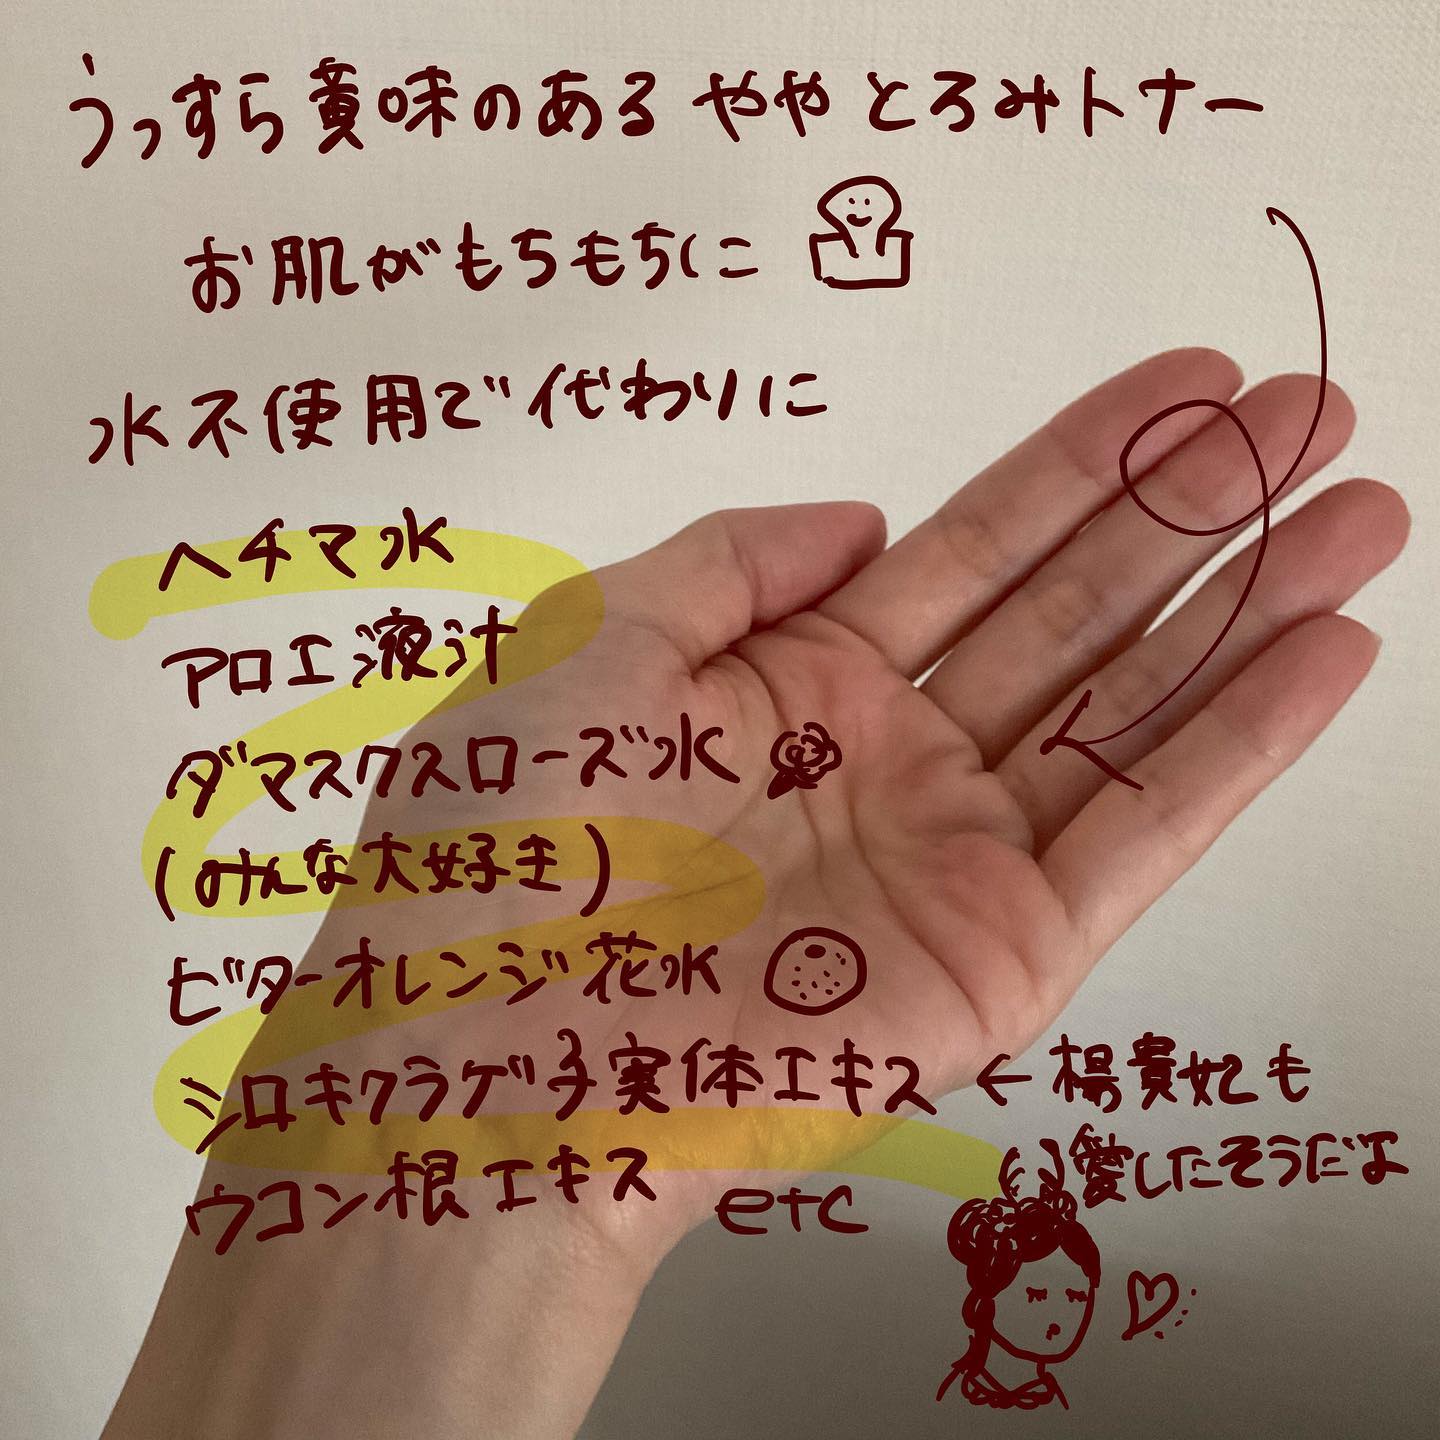 うっすら黄味のある ややとろみトナー
お肌がもちもちに
水不使用で代わりに
ヘチマ水
アロエ液汁
ダマスクスローズ水
(みんな大好き)
ビターオレンジ花水
シロキクラゲ子実体エキス ← 楊貴妃も
愛したそうだよ
ウコン根エキス etc